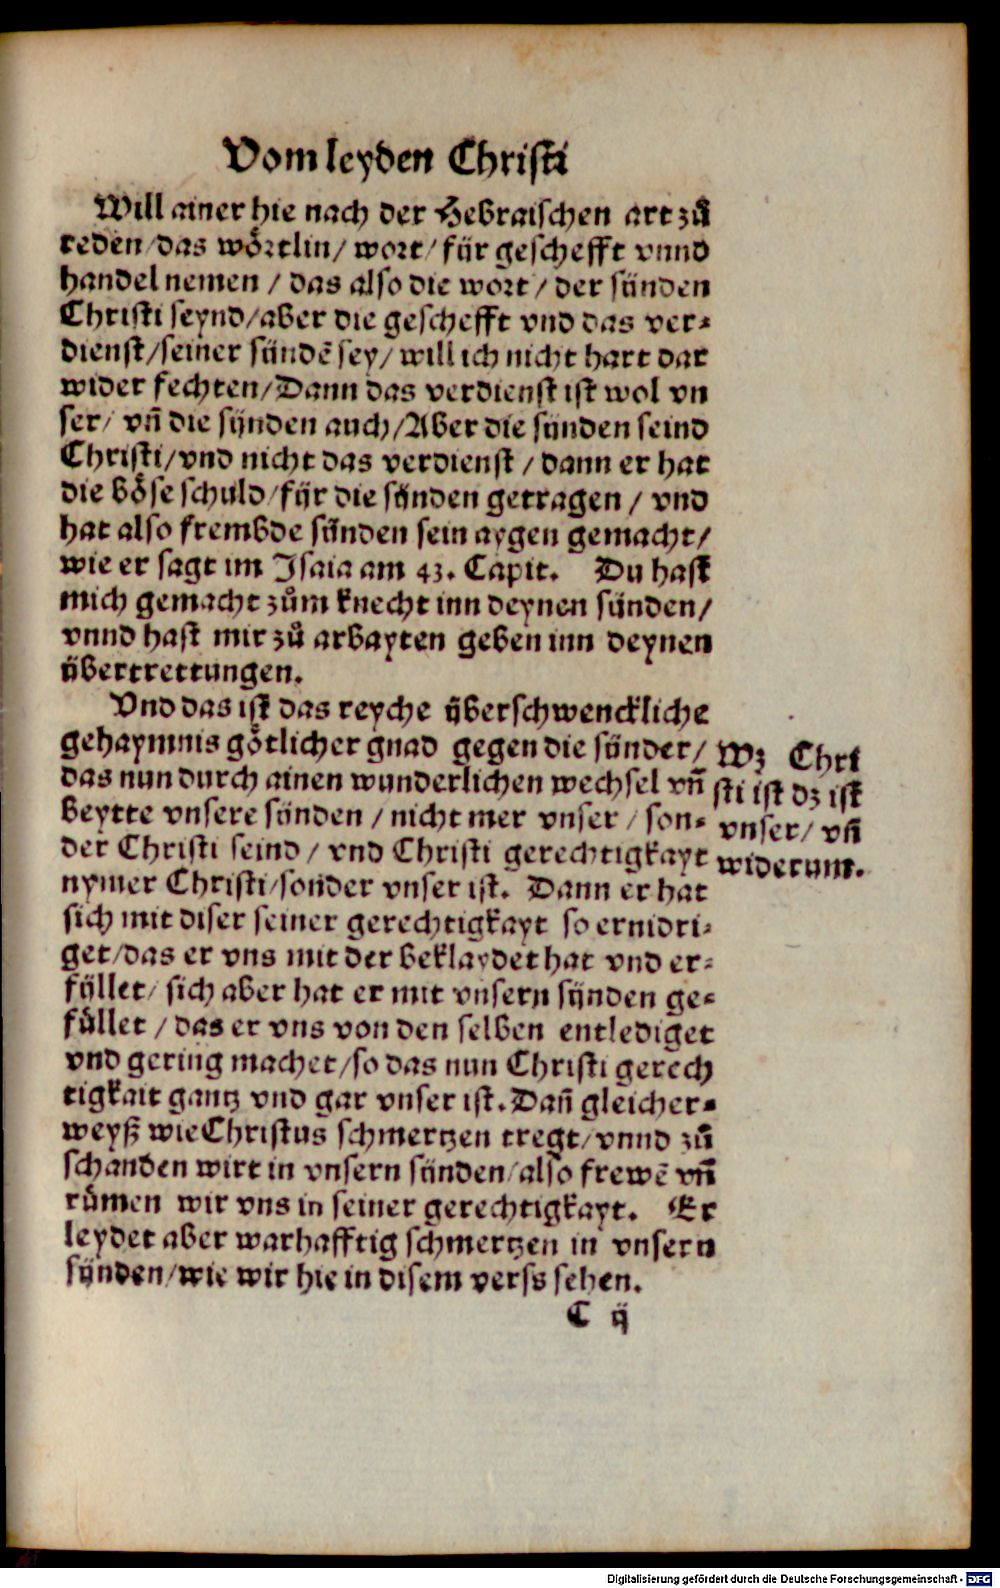 Vom leyden Christi
Will ainer hie nach der Hebraischen art zů
reden/das wörtlin/ wort/ für geschefft vnnd
handel nemen / das also die wort / der sünden
Christi seynd/aber die geschefft vnd das ver-
dienst/seiner sündē sey/ will ich nicht hart dar
wider fechten/Dann das verdienst ist wol vn
ser/ vn̄ die sünden auch/Aber die sünden seind
Christi/vnd nicht das verdienst / dann er hat
die böse schuld/für die sünden getragen / vnd
hat also frembde sünden sein aygen gemacht/
wie er sagt im Isaia am 43. Capit. Du hast
mich gemacht zům knecht inn deynen sünden/
vnnd hast mir zů arbayten geben inn deynen
übertrettungen.
Vnd das ist das reyche überschwenckliche
gehaymnis götlicher gnad gegen die sünder/
das nun durch ainen wunderlichen wechsel vn̄
beytte vnsere sünden / nicht mer vnser / son-
der Christi seind / vnd Christi gerechtigkayt
nymer Christi/sonder vnser ist. Dann er hat
sich mit diser seiner gerechtigkayt so ernidri-
get/das er vns mit der beklaydet hat vnd er-
füllet/ sich aber hat er mit vnsern sünden ge-
füllet / das er vns von den selben entlediget
vnd gering machet/so das nun Christi gerech
tigkait gantz vnd gar vnser ist. Dan̄ gleicher-
weyß wie Christus schmertzen tregt/vnnd zů
schanden wirt in vnsern sünden/also frewē vn̄
růmen wir vns in seiner gerechtigkayt. Er
leydet aber warhafftig schmertzen in vnsern
sünden/wie wir hie in disem verss sehen.
C ij
Wz Chri
sti ist dz ist
vnser/ vn̄
widerum.
Digitalisierung gefördert durch die Deutsche Forschungsgemeinschaft - DFG